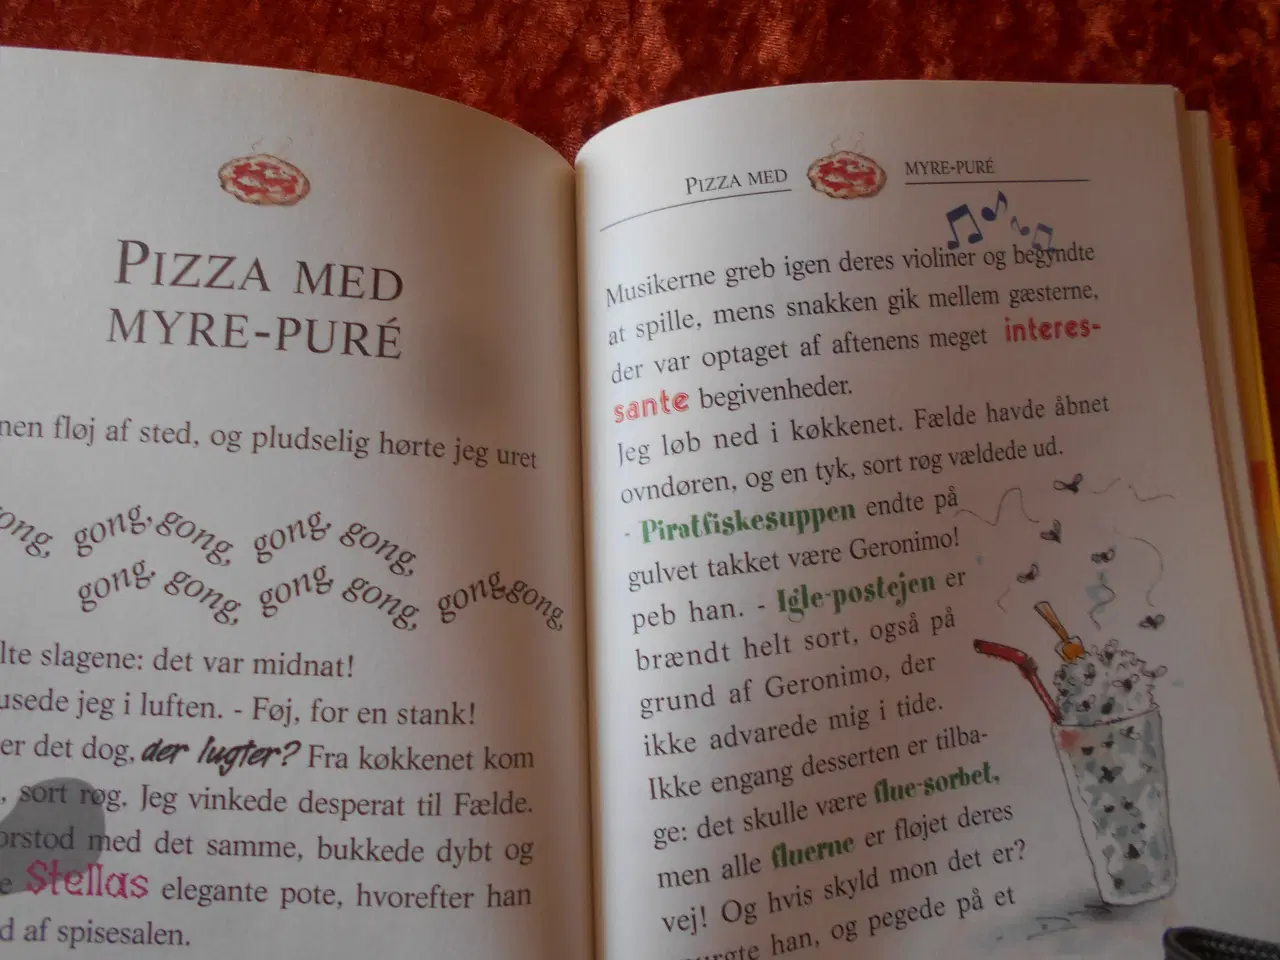 PIZZA MED
MYRE-PURÉ
fløj af sted, og pludselig hørte jeg uret
gong, gong, gong, gong,
gong, gong, gong, gong, gong, gong,
slagene: det var midnat!
jeg i luften. - Føj, for en stank!
er det dog, der lugter? Fra køkkenet kom
, sort røg. Jeg vinkede desperat til Fælde.
med det samme, bukkede dybt og
Stellas elegante pote, hvorefter han
af spisesalen.
PIZZA MED MYRE-PURÉ
Musikerne greb igen deres violiner og begyndte
at spille, mens snakken gik mellem gæsterne,
der var optaget af aftenens meget interes-
sante begivenheder.
Jeg løb ned i køkkenet. Fælde havde åbnet
ovndøren, og en tyk, sort røg vældede ud.
- Piratfiskesuppen endte på
gulvet takket være Geronimo!
peb han. - Igle-postejen er
brændt helt sort, også på
grund af Geronimo, der
ikke advarede mig i tide.
Ikke engang desserten er tilba-
ge: det skulle være flue-sorbet,
men alle fluerne er fløjet deres
vej! Og hvis skyld mon det er?
han, og pegede på et